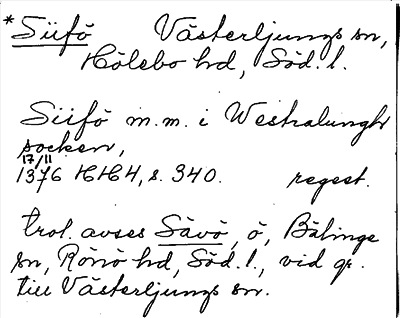 *Siifö Västerljungs sn,
Hölebo hd, Söd. l.
Siifö m.m. i Westralungh
socken,
17/11
1376 HH4, s. 340. regest.
trol. avses Sävö, ö, Bälinge
sn, Rönö hd, Söd. l., vid gr.
till Västerljungs sn.